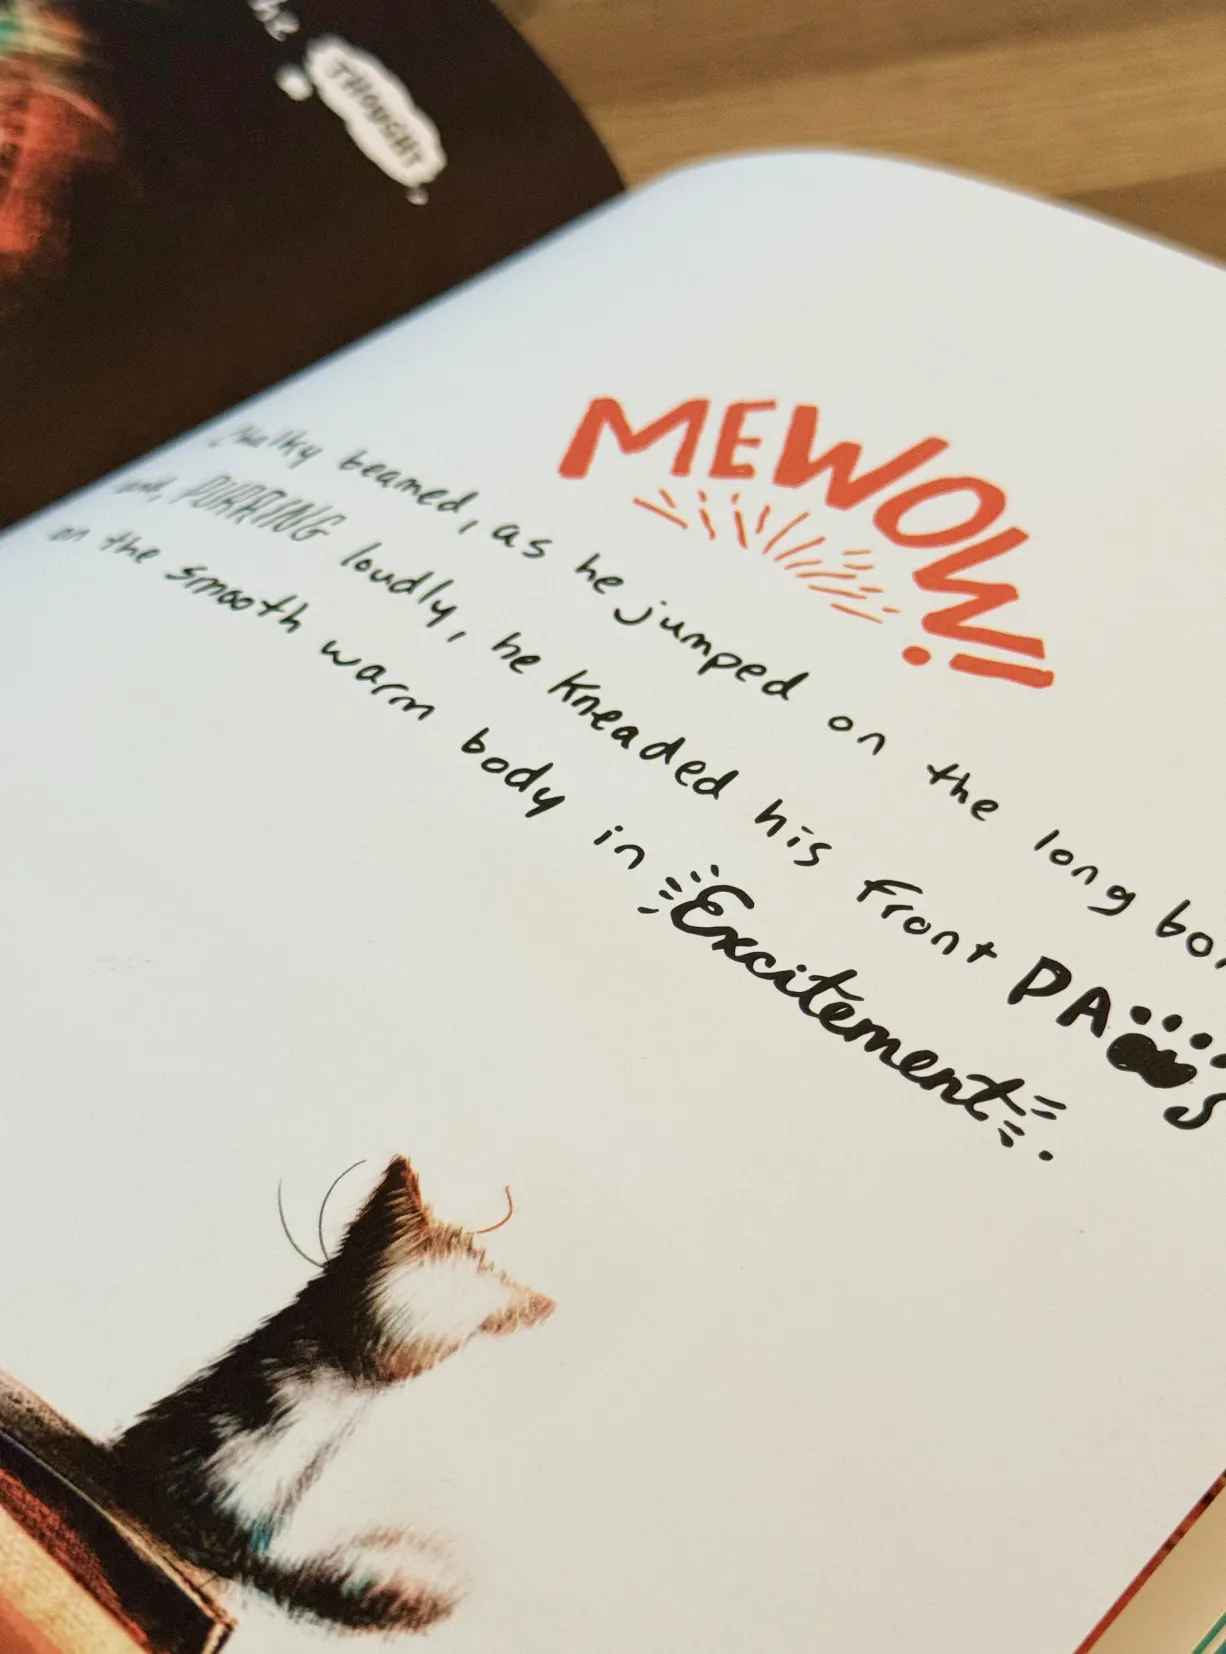 THOUGHT
MEWOW!
beamed, as he jumped on the long
and, PURRING loudly, he Kneaded his front PAWS
on the smooth warm body in Excitement.